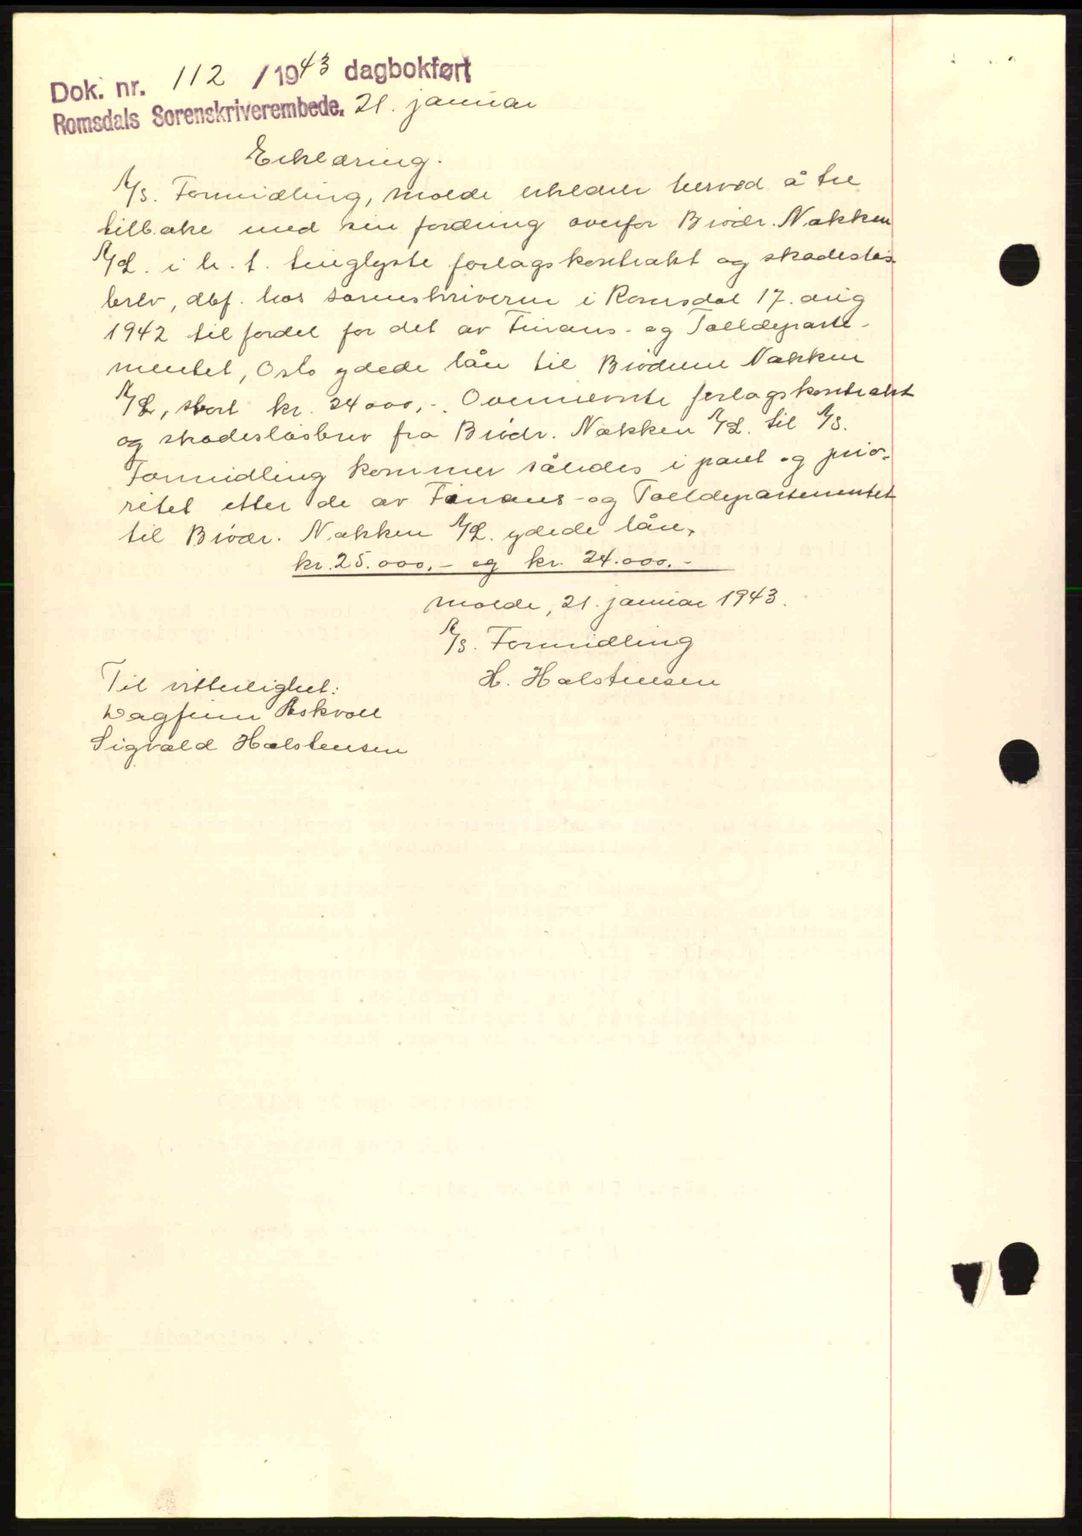 Dok. nr. 112 / 1943 dagbokført
Romsdals Sorenskriverembede. 21. januar
Erklæring.
A/S. Formidling, Molde erklærer herved å tre
tilbake med sin fordring overfor Brødr. Nakken
A/L. i h. t. tinglyste forlagskontrakt og skadesløs
brev, dbf. hos sorenskriveren i Romsdal 17. aug
1942 til fordel for det av Finans- og Tolldeparte-
mentet, Oslo ydede lån til Brødrene Nakken
A/L, stort kr. 24000,-. Ovennevnte forlagskontrakt
og skadesløsbrev fra Brødr. Nakken A/L. til A/S.
Formidling kommer således i pant og prio-
ritet etter de av Finans- og Tolldepartementet
til Brødr. Nakken A/L. ydede lån,
kr. 25.000,- og kr. 24.000,-
Molde, 21. januar 1943.
A/S. Formidling
H. Halstensen
Til vitterlighet:
Dagfinn Askvoll
Sigvald Halstensen